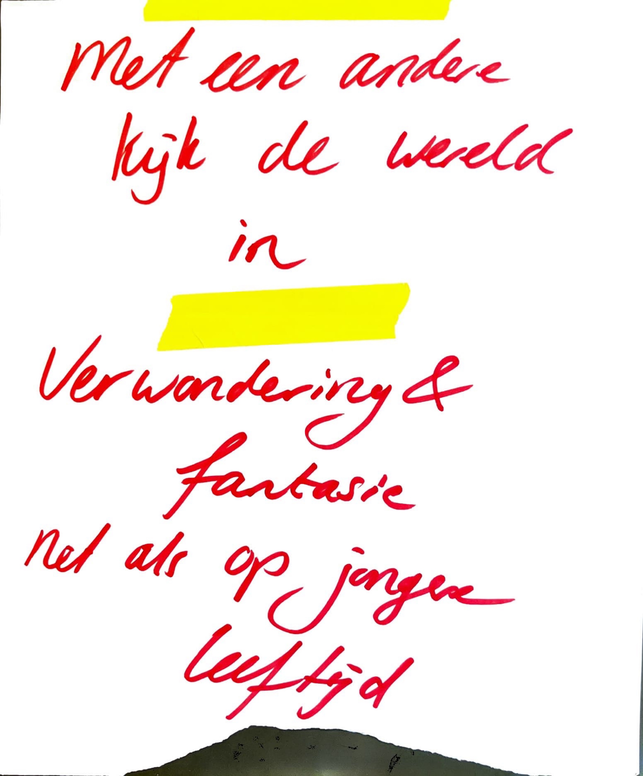 Met een andere
kijk de wereld
in
Verwondering &
fantasie
net als op jongere
leeftijd